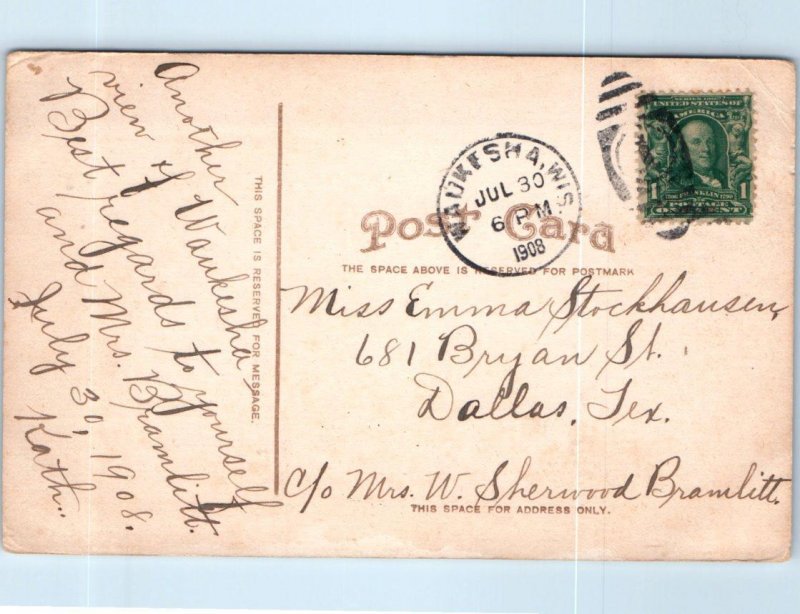 Another
view of Waukesha
Best regards to yourself
and Mrs. Bramlitt.
July 30, 1908.
Kath..
THIS SPACE IS RESERVED FOR MESSAGE.
WAUKESHA, WIS.
JUL 30
6 PM
1908
SERIES 1902
UNITED STATES OF
AMERICA
1 FRANKLIN 1
POSTAGE
ONE CENT
Post Card
THE SPACE ABOVE IS RESERVED FOR POSTMARK
Miss Emma Stockhausen,
681 Bryan St.
Dallas, Tex.
c/o Mrs. W. Sherwood Bramlitt.
THIS SPACE FOR ADDRESS ONLY.